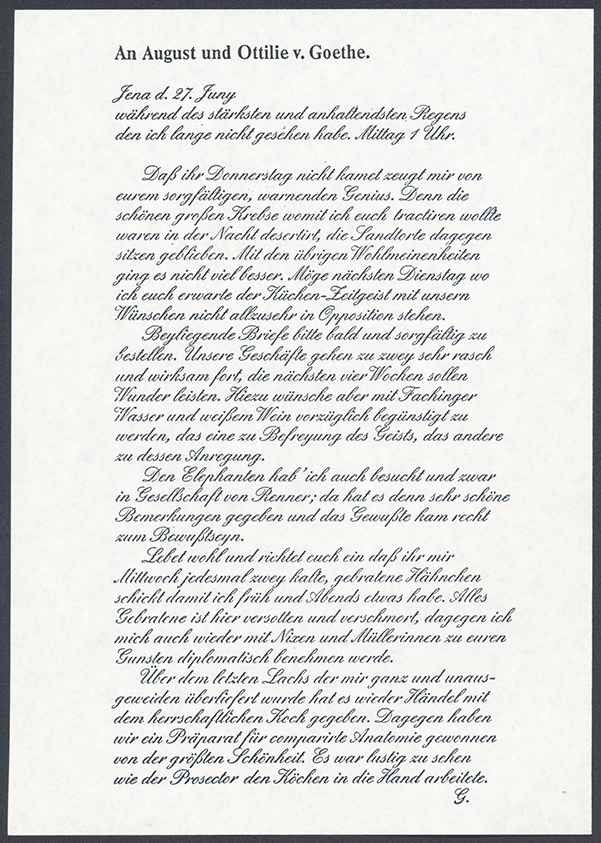 An August und Ottilie v. Goethe.
Jena d. 27. Juny
während des stärksten und anhaltendsten Regens
den ich lange nicht gesehen habe. Mittag 1 Uhr.
Daß ihr Donnerstag nicht kamet zeugt mir von
eurem sorgfältigen, warnenden Genius. Denn die
schönen großen Krebse womit ich euch tractiren wollte
waren in der Nacht desertirt, die Sandtorte dagegen
sitzen geblieben. Mit den übrigen Wohlmeinenheiten
ging es nicht viel besser. Möge nächsten Dienstag wo
ich euch erwarte der Küchen-Zeitgeist mit unsern
Wünschen nicht allzusehr in Opposition stehen.
Beyliegende Briefe bitte bald und sorgfältig zu
bestellen. Unsere Geschäfte gehen zu zwey sehr rasch
und wirksam fort, die nächsten vier Wochen sollen
Wunder leisten. Hiezu wünsche aber mit Fachinger
Wasser und weißem Wein vorzüglich begünstigt zu
werden, das eine zu Befreyung des Geists, das andere
zu dessen Anregung.
Den Elephanten hab' ich auch besucht und zwar
in Gesellschaft von Renner; da hat es denn sehr schöne
Bemerkungen gegeben und das Gewußte kam recht
zum Bewußtseyn.
Lebet wohl und richtet euch ein daß ihr mir
Mittwoch jedesmal zwey kalte, gebratene Hähnchen
schickt damit ich früh und Abends etwas habe. Alles
Gebratene ist hier versotten und verschmort, dagegen ich
mich auch wieder mit Nixen und Müllerinnen zu euren
Gunsten diplomatisch benehmen werde.
Über dem letzten Lachs der mir ganz und unaus-
geweiden überliefert wurde hat es wieder Händel mit
dem herrschaftlichen Koch gegeben. Dagegen haben
wir ein Präparat für comparirte Anatomie gewonnen
von der größten Schönheit. Es war lustig zu sehen
wie der Prosector den Köchen in die Hand arbeitete.
G.